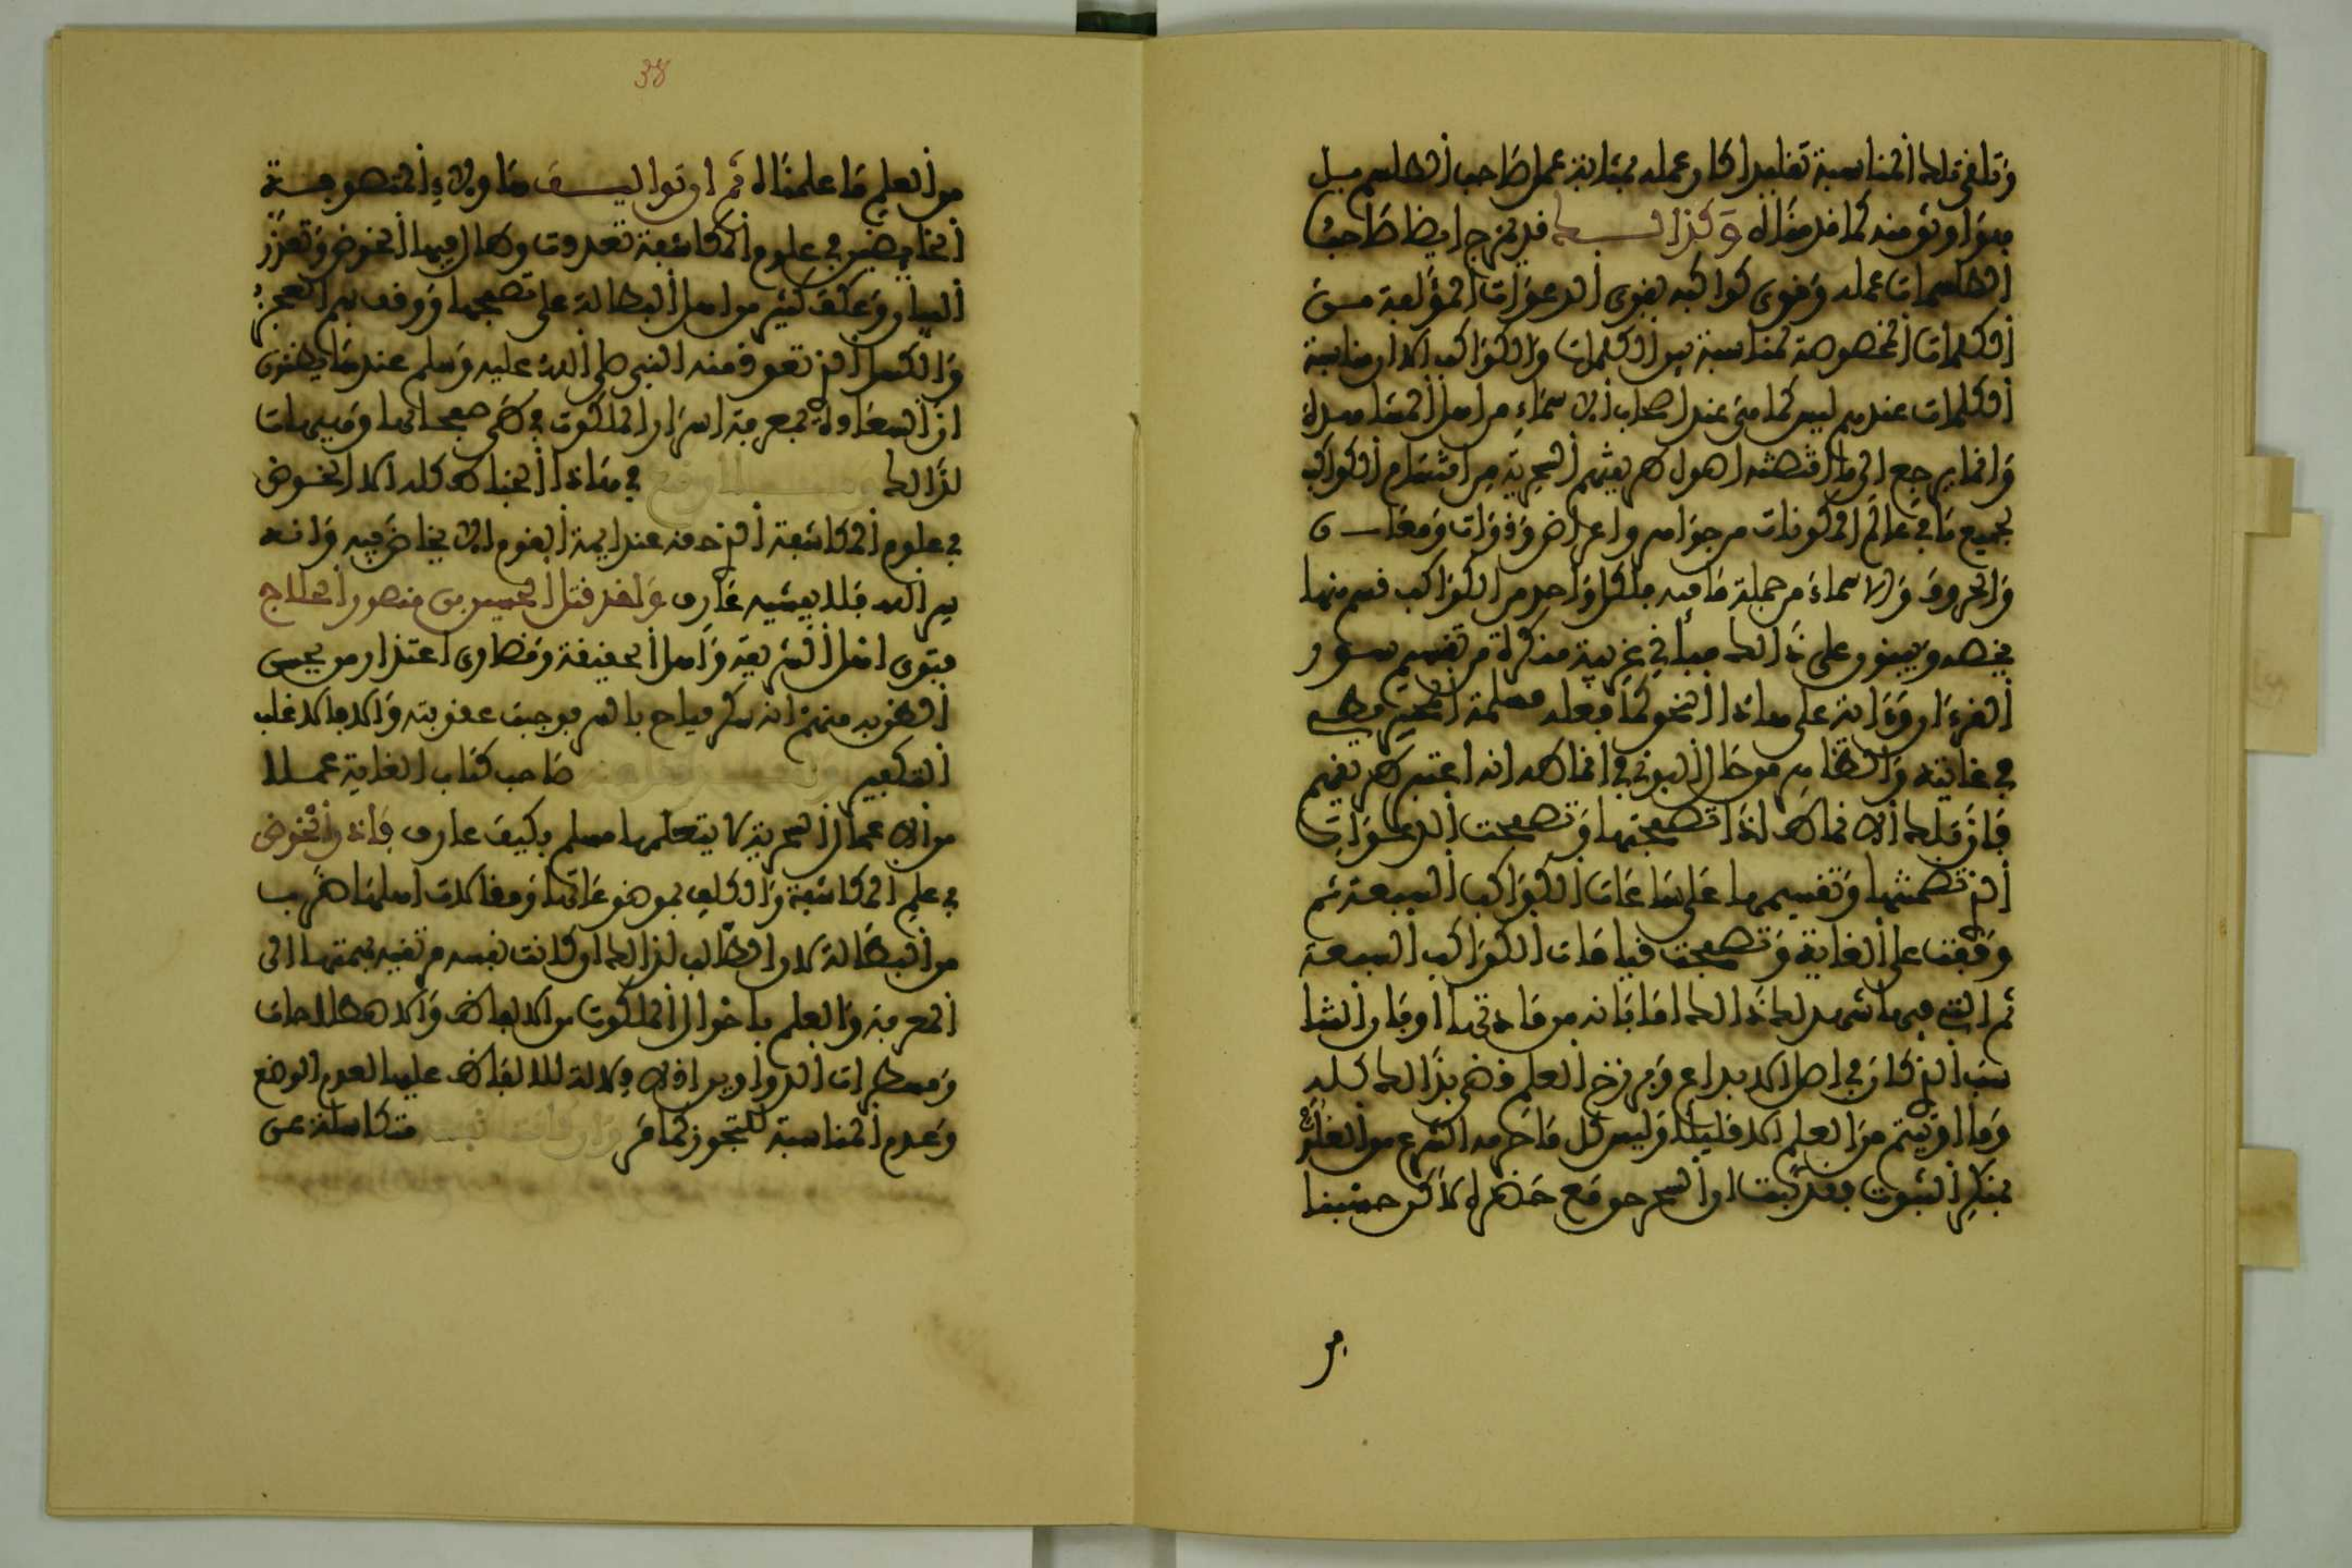 وتلقى تلك المناسبة تقليدا كان عمله بمثابة عمل صاحب الطلسم بل
هو اوثق منه كما قدمناه وكذلك قد يمزج ايضا صاحب
الطلسمات عمله وقوى كواكبه بقوى الدعوات المؤلفة من
الكلمات المخصوصة لمناسبة بين الكلمات والكواكب الا ان مناسبة
الكلمات عندهم ليس كما هي عند اصحاب الاسماء من اهل المشاهدة
وانما يرجع الى ما اقتضته اصول طريقتهم السحرية من اقتسام الكواكب
لجميع ما في عالم المكونات من جواهر واعراض وذوات ومعان
والحروف والاسماء من جملة ما فيه فلكل واحد من الكواكب قسم منها
يخصه ويبنون على ذلك مباني غريبة منكرة من تقسيم سور
القرءان وءايه على هاذا النحو كما فعله مسلمة المجريطي
في غايته والظاهر من حال البوني في انماطه انه اعتبر طريقهم
فان تلك الانماط اذا تصفحتها وتصفحت الدعوات
التي تضمنتها وتقسيمها على ساعات الكواكب السبعة ثم
وقفت على الغاية وتصفحت قيامات الكواكب السبعة
التي فيها شهد لك ذلك اما بانه من مادتها او بان التنا
سب الذي كان في اصل الابداع وبرزخ العلم قضى بذلك كله
وما اوتيتم من العلم الا قليلا وليس كل ما حرمه الشرع من العلوم
بمنكر الثبوت فقد ثبت ان السحر حق مع حظره لاكن حسبنا
من
38
من العلم ما علمناه ثم اوتوا ليف هاولاء المتصوفة
الخائضين في علوم المكاشفة تعددت وطال فيها الخوض وتعذر
البيان وعكف كثير من اهل البطالة على تصفحها ووقف بهم العجز
والكسل الذي تعوذ منه النبي صلى الله عليه وسلم عندما يظنون
ان السعادة في معرفة اسرار الملكوت في طي صفحاتها وهيهات
لذلك في هاذا الخباط كله الا الخوض
في علوم المكاشفة الذي حقه عند ايمة القوم الا يخاض فيه وانه
سر الله فلا يفشيه عارف ولقد قتل الحسين بن منصور الحلاج
بفتوى اهل الشريعة واهل الحقيقة وقصارى اعتذار من يحسن
الظن به منهم انه سكر فباح بالسر فوجبت عقوبته والا فالاغلب
التكفير صاحب كتاب الغاية عملا
من الاعمال السحرية لا يتعلمها مسلم فكيف عارف فاذن الخوض
في علم المكاشفة والكلف بموضوعاتها ومقالات اهلها ضرب
من البطالة لان الطالب لذلك ان كانت نفسه مرتقية بهمتها الى
المعرفة والعلم باحوال الملكوت من الالفاظ والاصطلاحات
ومسطرات الدواوين اذ لا دلالة للالفاظ عليها لعدم الوضع
وعدم المناسبة للتجوز كما مر وان كانت نفسه متكاسلة عن